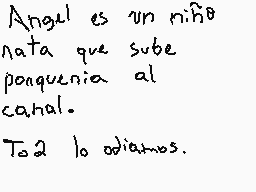 Angel es un niño
nata que sube
porquenia al
canal.
To2 lo odiamos.